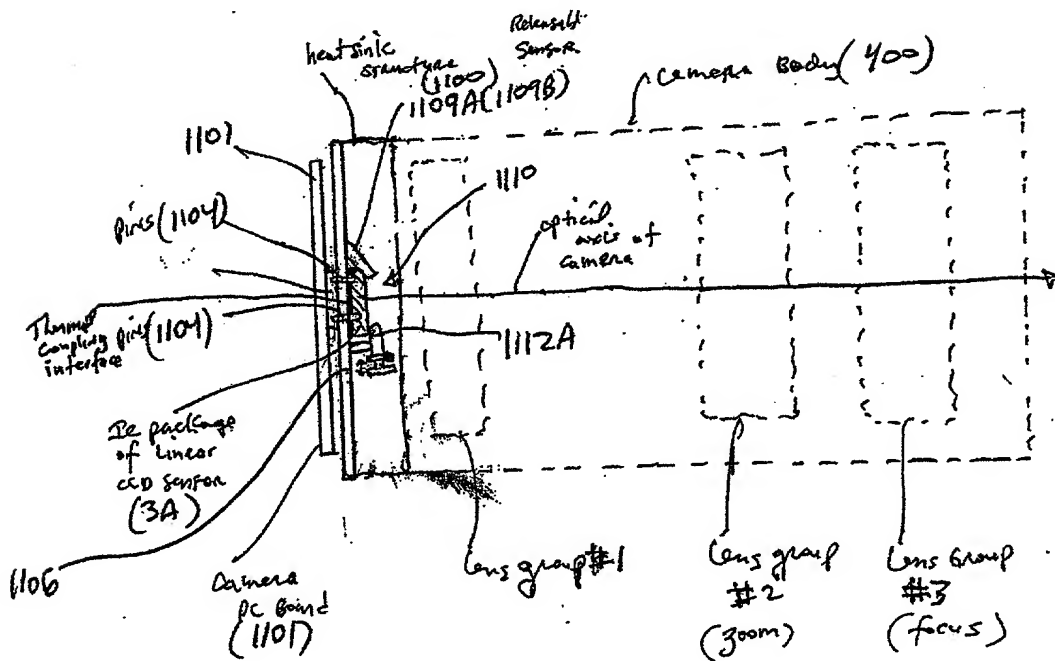 heatsink
structure
(1100)
Releasable
Sensor
1109A(1109B)
camera Body (400)
1107
1110
pins (1104)
optical
axis of
camera
Thermal
coupling pins (1104)
interface
1112A
IC package
of linear
CCD sensor
(3A)
1106
Camera
PC Board
(1101)
Lens group #1
Lens group
#2
(zoom)
Lens Group
#3
(focus)